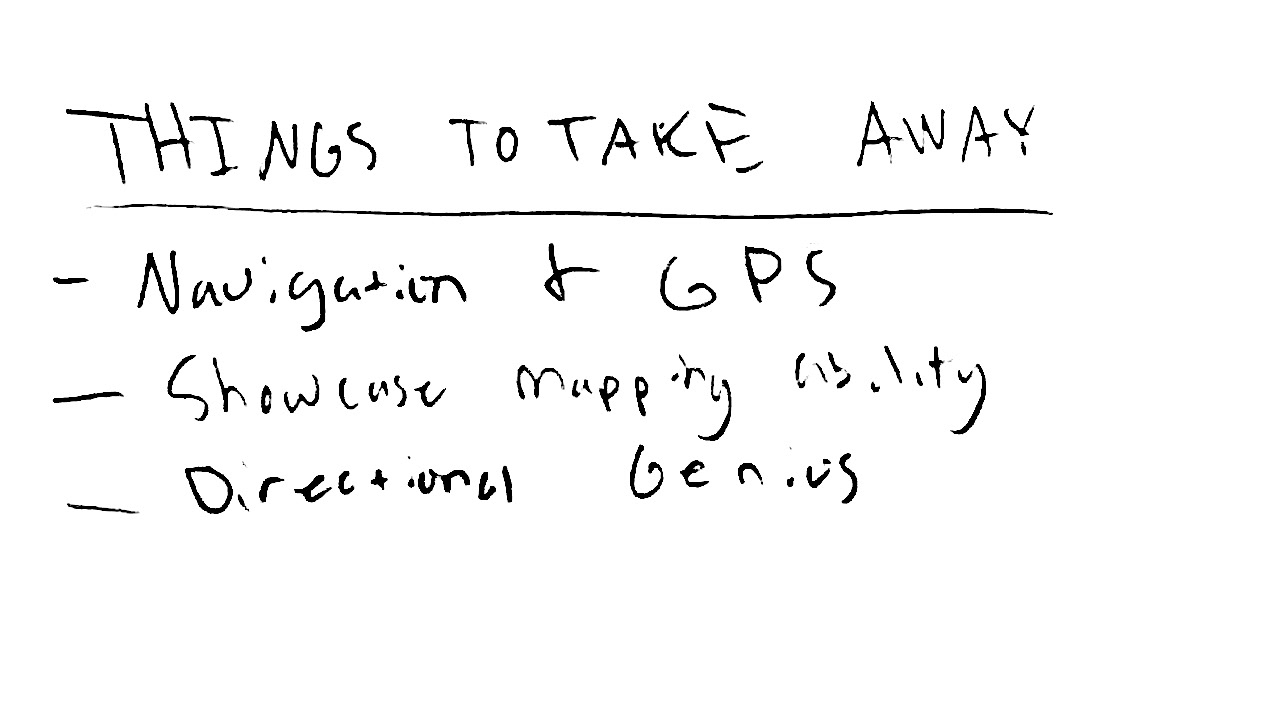 THINGS TO TAKE AWAY
- Navigation & GPS
- Showcase mapping ability
- Directional Genius